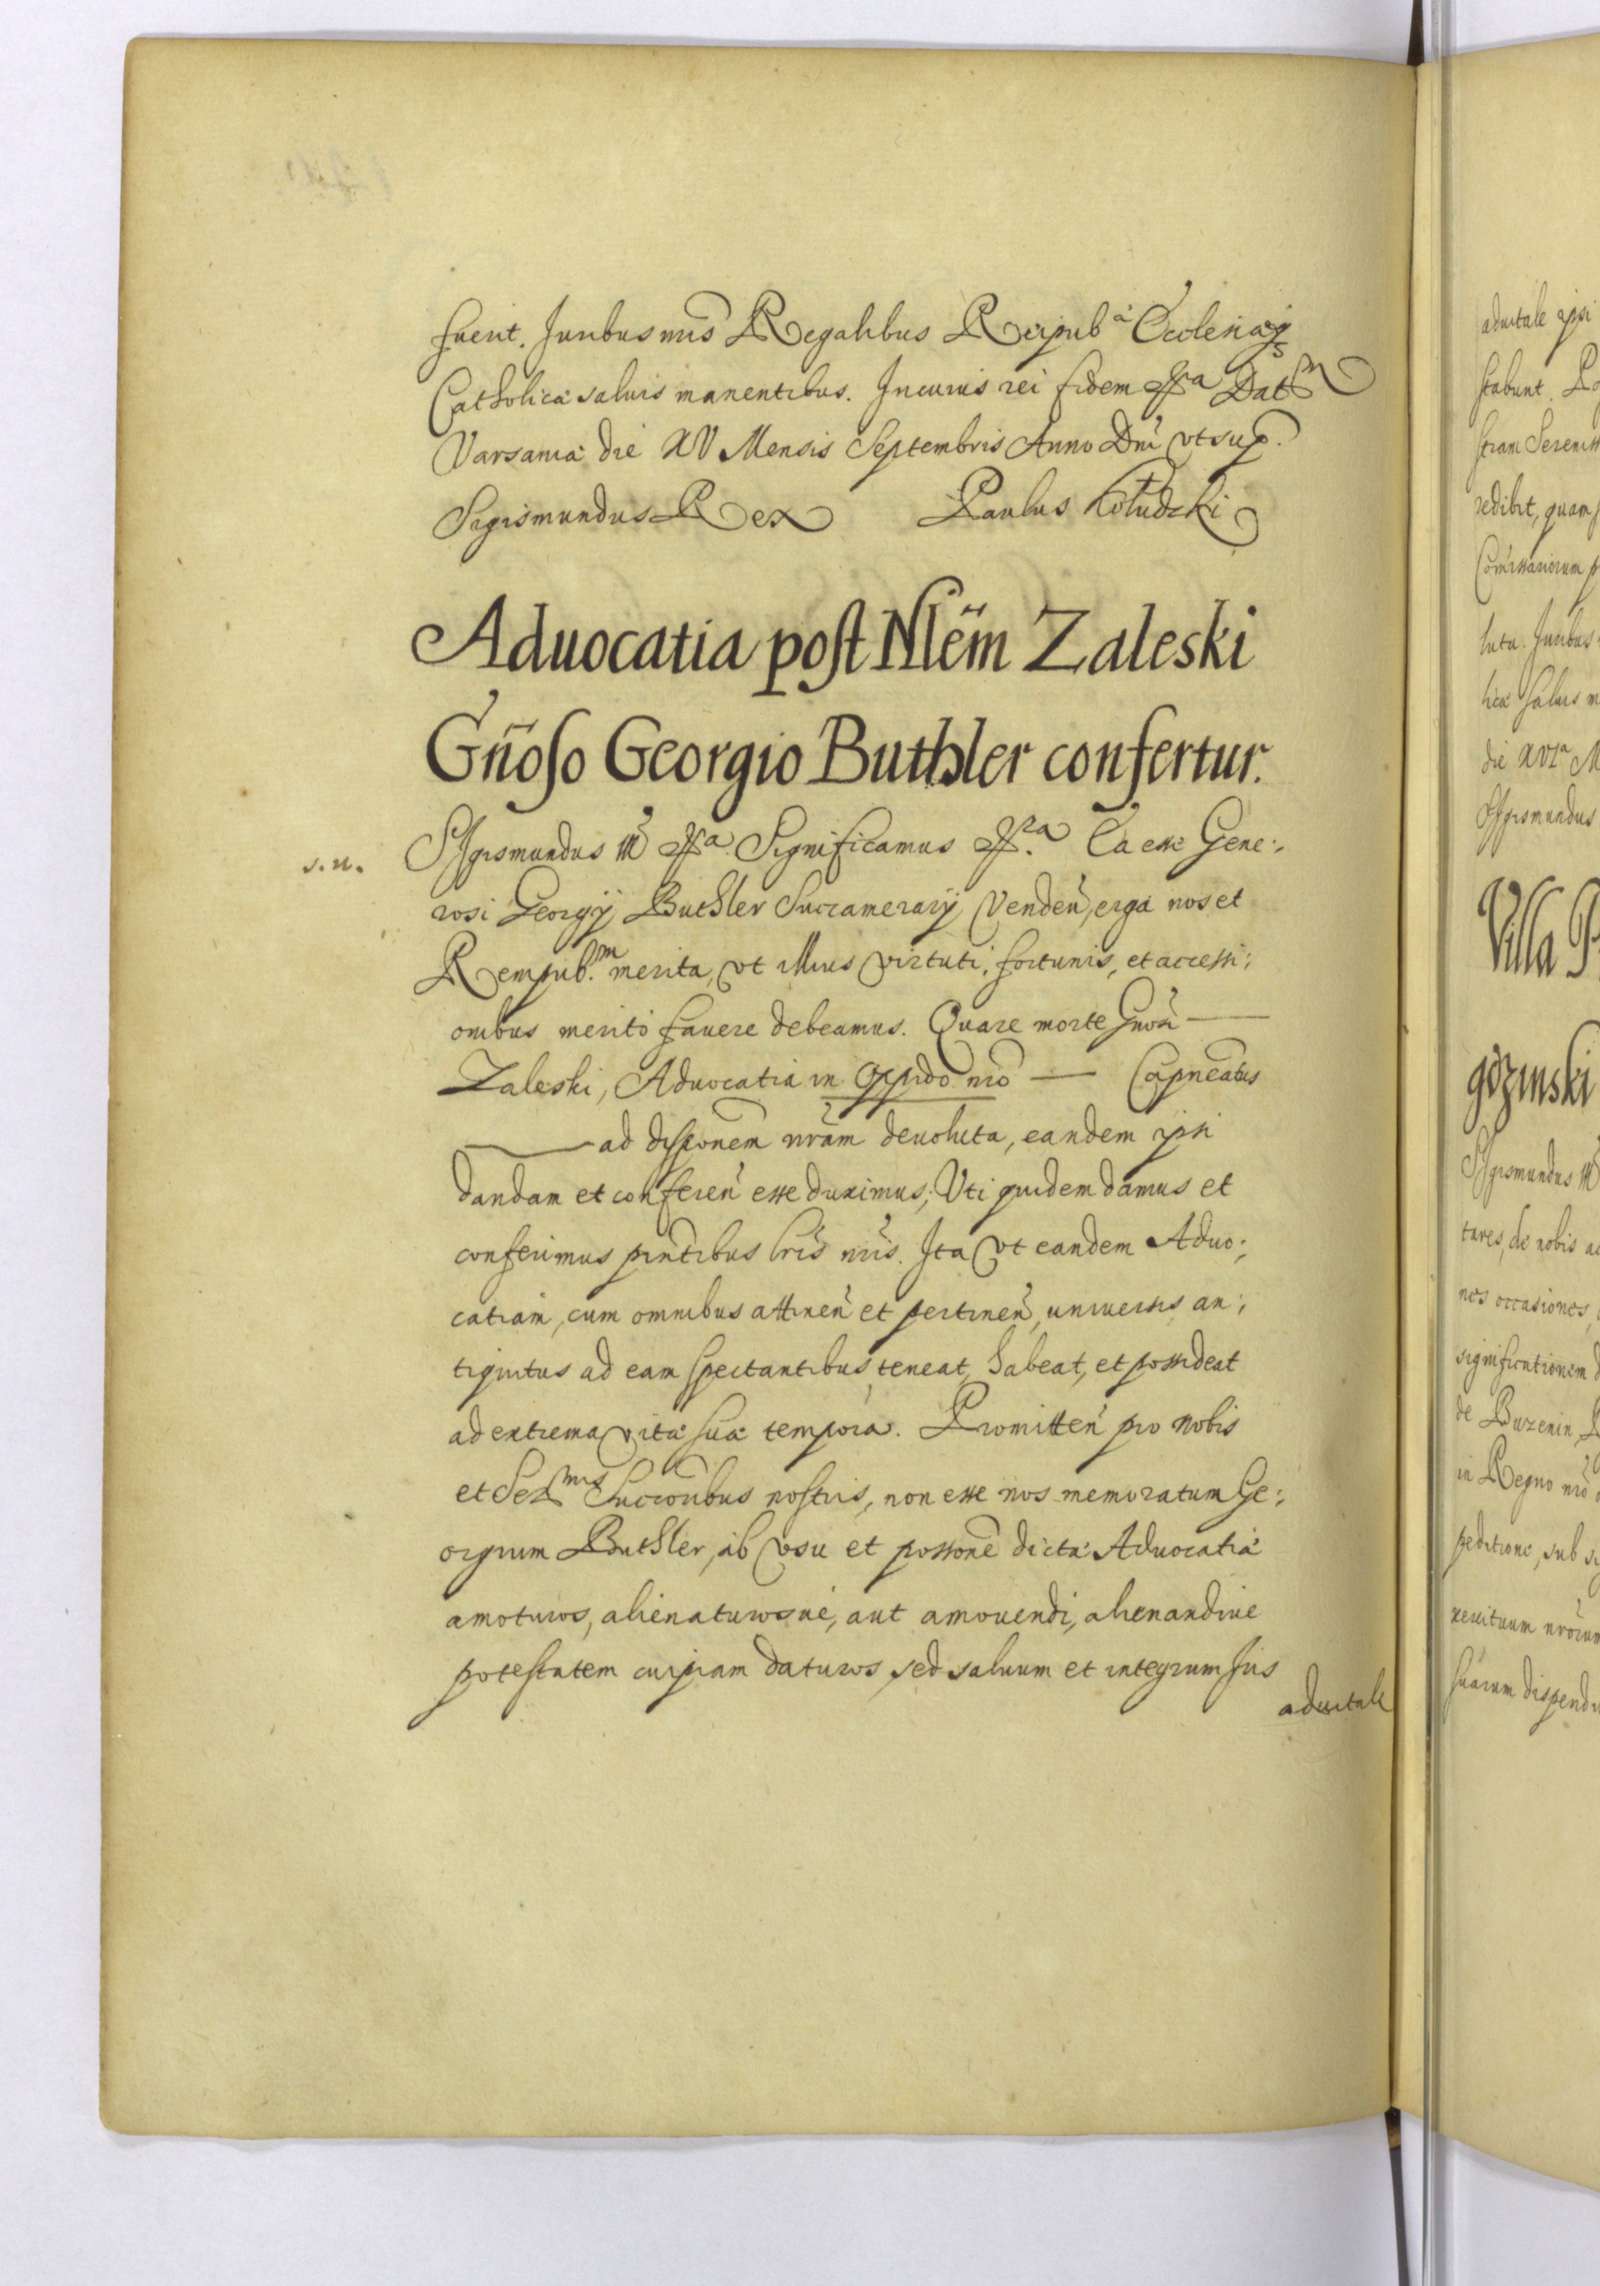 fuerit. Iuribus nr̃is Regalibus Reipub.ᵃ Ecclesiaq̃ꝫ
Catholicá saluis manentibus. In cuius rei fidem &ᵃ Dat̃m
Varsauiá die XV Mensis Septembris Anno Dnĩ vt sup.
Sigismundus Rex Paulus Kołudzki
Aduocatia post Nlẽm Zaleski
Gñoso Georgio Buthler confertur.
s. n.
Sigismundus III &ᵃ Significamus &ᵃ. Ea esse Gene:,
rosi Georgij Buthler Succamerarij Vendeñ, erga nos et
Rempub.ᵐ merita, vt illius virtuti, fortunis, et accessi:,
onibus meritò fauere debeamus. Quare morte Gnosi —
Zaleski, Aduocatia in oppido nrõ — Capneatus
— ad dispõnem nrãm deuoluta, eandem ipsi
dandam et confereñ esse duximus; Vti quidem damus et
conferimus pñtibus lrĩs nr̃is. Ita vt eandem Aduo:,
catiam, cum omnibus attineñ et pertineñ, uniuersis an:,
tiquitus ad eam spectantibus teneat, habeat, et possideat
ad extrema vitá suá tempora. Promitteñ pro nobis
et Serᵐⁱˢ Succoribus nostris, non esse nos memoratum Ge:,
orgium Buthler, ab vsu et possõne dictá Aduocatiá
amoturos, alienaturosué, aut amouendi, alienandiue
potestatem cuipiam daturos, sed saluum et integrum Ius
aduitale
aduitale ipsi
stabunt.
stram Sereniss
redibit, quam
Comissariorum
luta. Iuribus
licá saluis
die XVIᵃ M
Sigismundus
Villa
gozinski
Sigismundus III
tares, de nobis
nes occasiones,
significationem
de Buzenin
in Regno nrõ
peditione, sub
nrõrum
suarum dispend